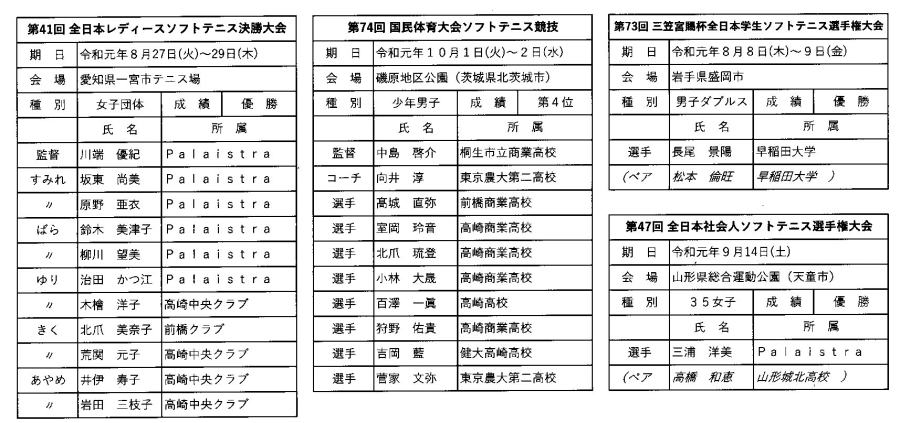 第41回 全日本レディースソフトテニス決勝大会
期 日 令和元年８月27日(火)～29日(木)
会 場 愛知県一宮市テニス場
種 別 女子団体 成 績 優 勝
氏 名 所 属
監督 川端 優紀 Ｐａｌａｉｓｔｒａ
すみれ 坂東 尚美 Ｐａｌａｉｓｔｒａ
〃 原野 亜衣 Ｐａｌａｉｓｔｒａ
ばら 鈴木 美津子 Ｐａｌａｉｓｔｒａ
〃 柳川 望美 Ｐａｌａｉｓｔｒａ
ゆり 治田 かつ江 Ｐａｌａｉｓｔｒａ
〃 木檜 洋子 高崎中央クラブ
きく 北爪 美奈子 前橋クラブ
〃 荒関 元子 高崎中央クラブ
あやめ 井伊 寿子 高崎中央クラブ
〃 岩田 三枝子 高崎中央クラブ
第74回 国民体育大会ソフトテニス競技
期 日 令和元年１０月１日(火)～２日(水)
会 場 磯原地区公園（茨城県北茨城市）
種 別 少年男子 成 績 第４位
氏 名 所 属
監督 中島 啓介 桐生市立商業高校
コーチ 向井 淳 東京農大第二高校
選手 高城 直弥 前橋商業高校
選手 室岡 玲音 高崎商業高校
選手 北爪 琉登 高崎商業高校
選手 小林 大晟 高崎商業高校
選手 百澤 一眞 高崎高校
選手 狩野 佑貴 高崎商業高校
選手 吉岡 藍 健大高崎高校
選手 菅家 文弥 東京農大第二高校
第73回 三笠宮賜杯全日本学生ソフトテニス選手権大会
期 日 令和元年８月８日(木)～９日(金)
会 場 岩手県盛岡市
種 別 男子ダブルス 成 績 優 勝
氏 名 所 属
選手 長尾 景陽 早稲田大学
（ペア 松本 倫旺 早稲田大学 ）
第47回 全日本社会人ソフトテニス選手権大会
期 日 令和元年９月14日(土)
会 場 山形県総合運動公園（天童市）
種 別 ３５女子 成 績 優 勝
氏 名 所 属
選手 三浦 洋美 Ｐａｌａｉｓｔｒａ
（ペア 高橋 和恵 山形城北高校 ）